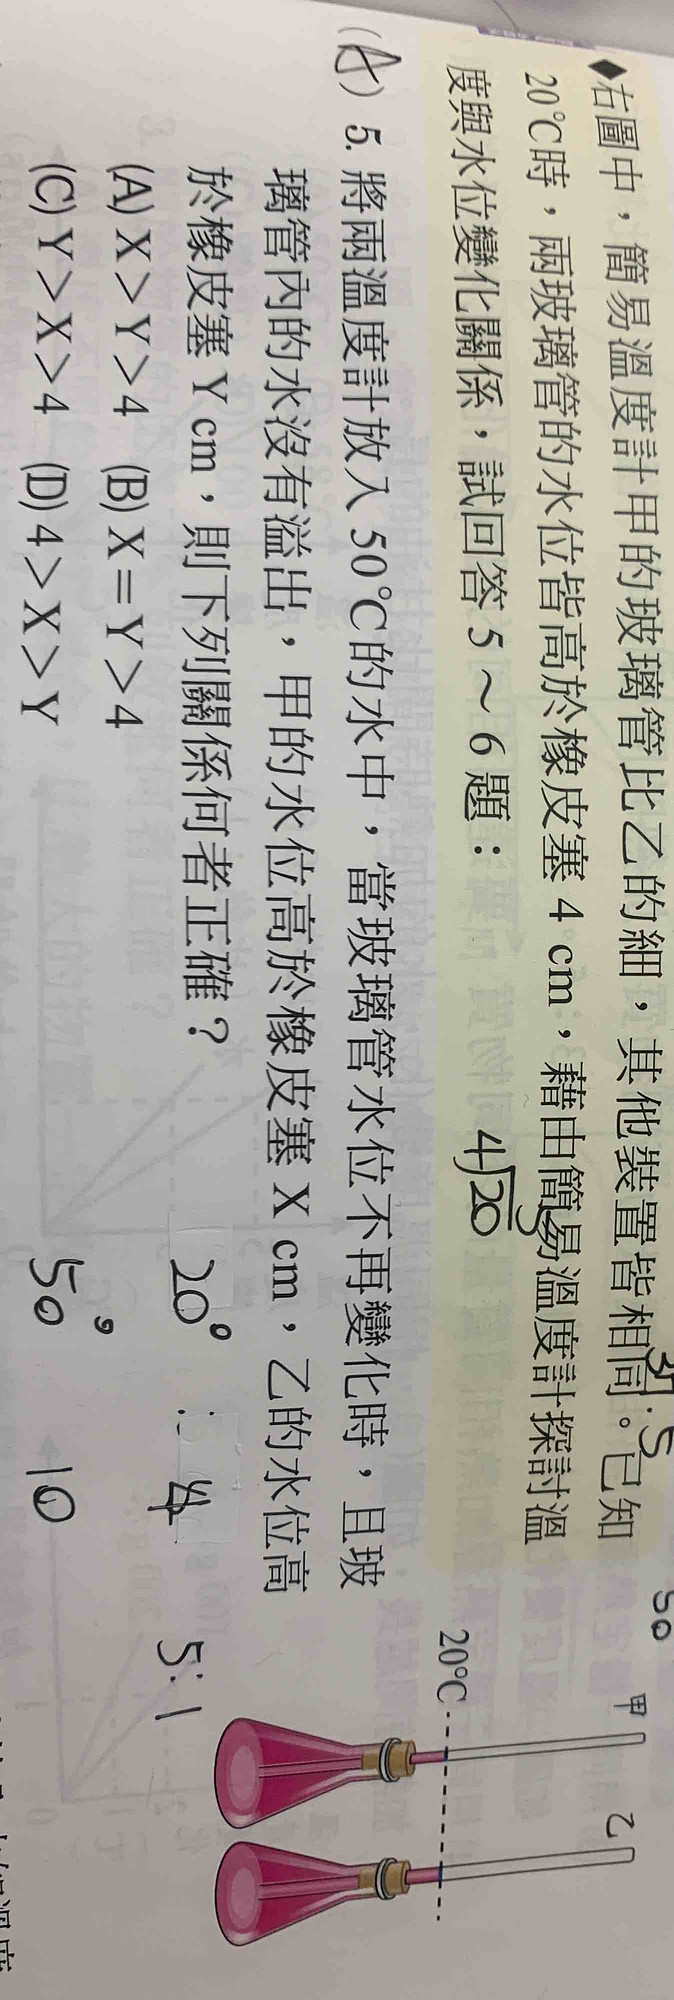 ◆右圖中，簡易溫度計甲的玻璃管比乙的細，其他裝置皆相同。已知
20℃時，兩玻璃管的水位皆高於橡皮塞 4 cm，藉由簡易溫度計探討溫
度與水位變化關係，試回答 5～6 題：
(A) 5. 將兩溫度計放入 50℃的水中，當玻璃管水位不再變化時，且玻
璃管內的水沒有溢出，甲的水位高於橡皮塞 X cm，乙的水位高
於橡皮塞 Y cm，則下列關係何者正確？
(A) X＞Y＞4　(B) X＝Y＞4
(C) Y＞X＞4　(D) 4＞X＞Y
5
4)20
20° : 4
5:1
50° 10
50
甲
乙
20℃